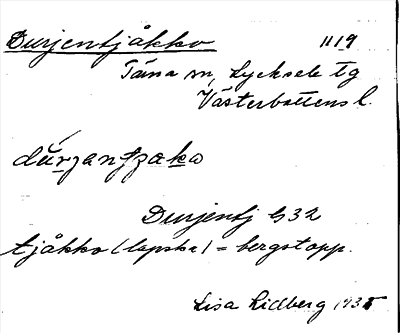 Durjentjåkko 1119
Täna sn, Lycksele tg
Västerbottens l.
dúrjantʒako
Durjentj G32
tjåkko (lapska) = bergstopp.
Lisa Lidberg 1935